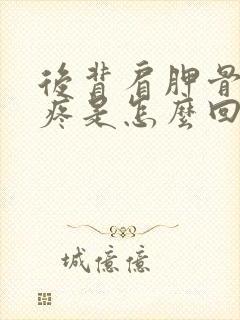 後背肩胛骨
疼是怎麼回
城億億